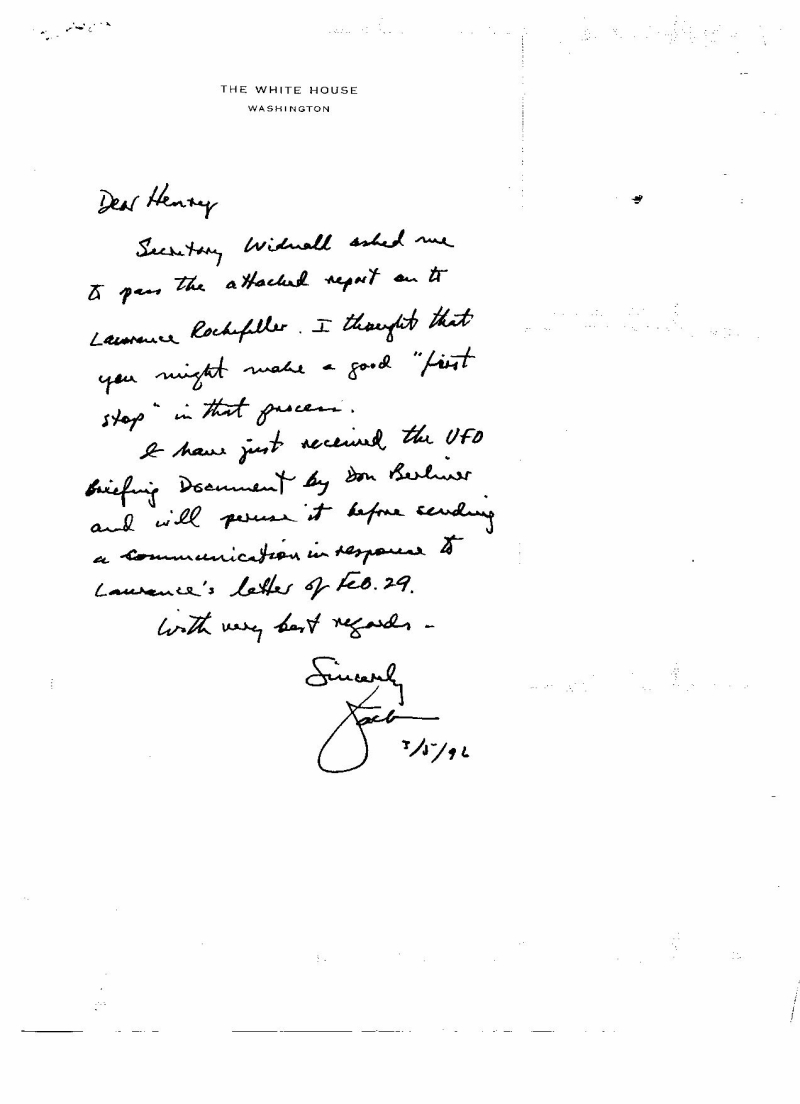 THE WHITE HOUSE
WASHINGTON
Dear Henry
Secretary Widnall asked me
to pass the attached report on to
Laurance Rockefeller. I thought that
you might make a good "first
stop" in that process.
I have just received the UFO
Briefing Document by Don Berliner
and will peruse it before sending
a communication in response to
Laurance's letter of Feb. 29.
With very best regards –
Sincerely
Jack
3/5/96